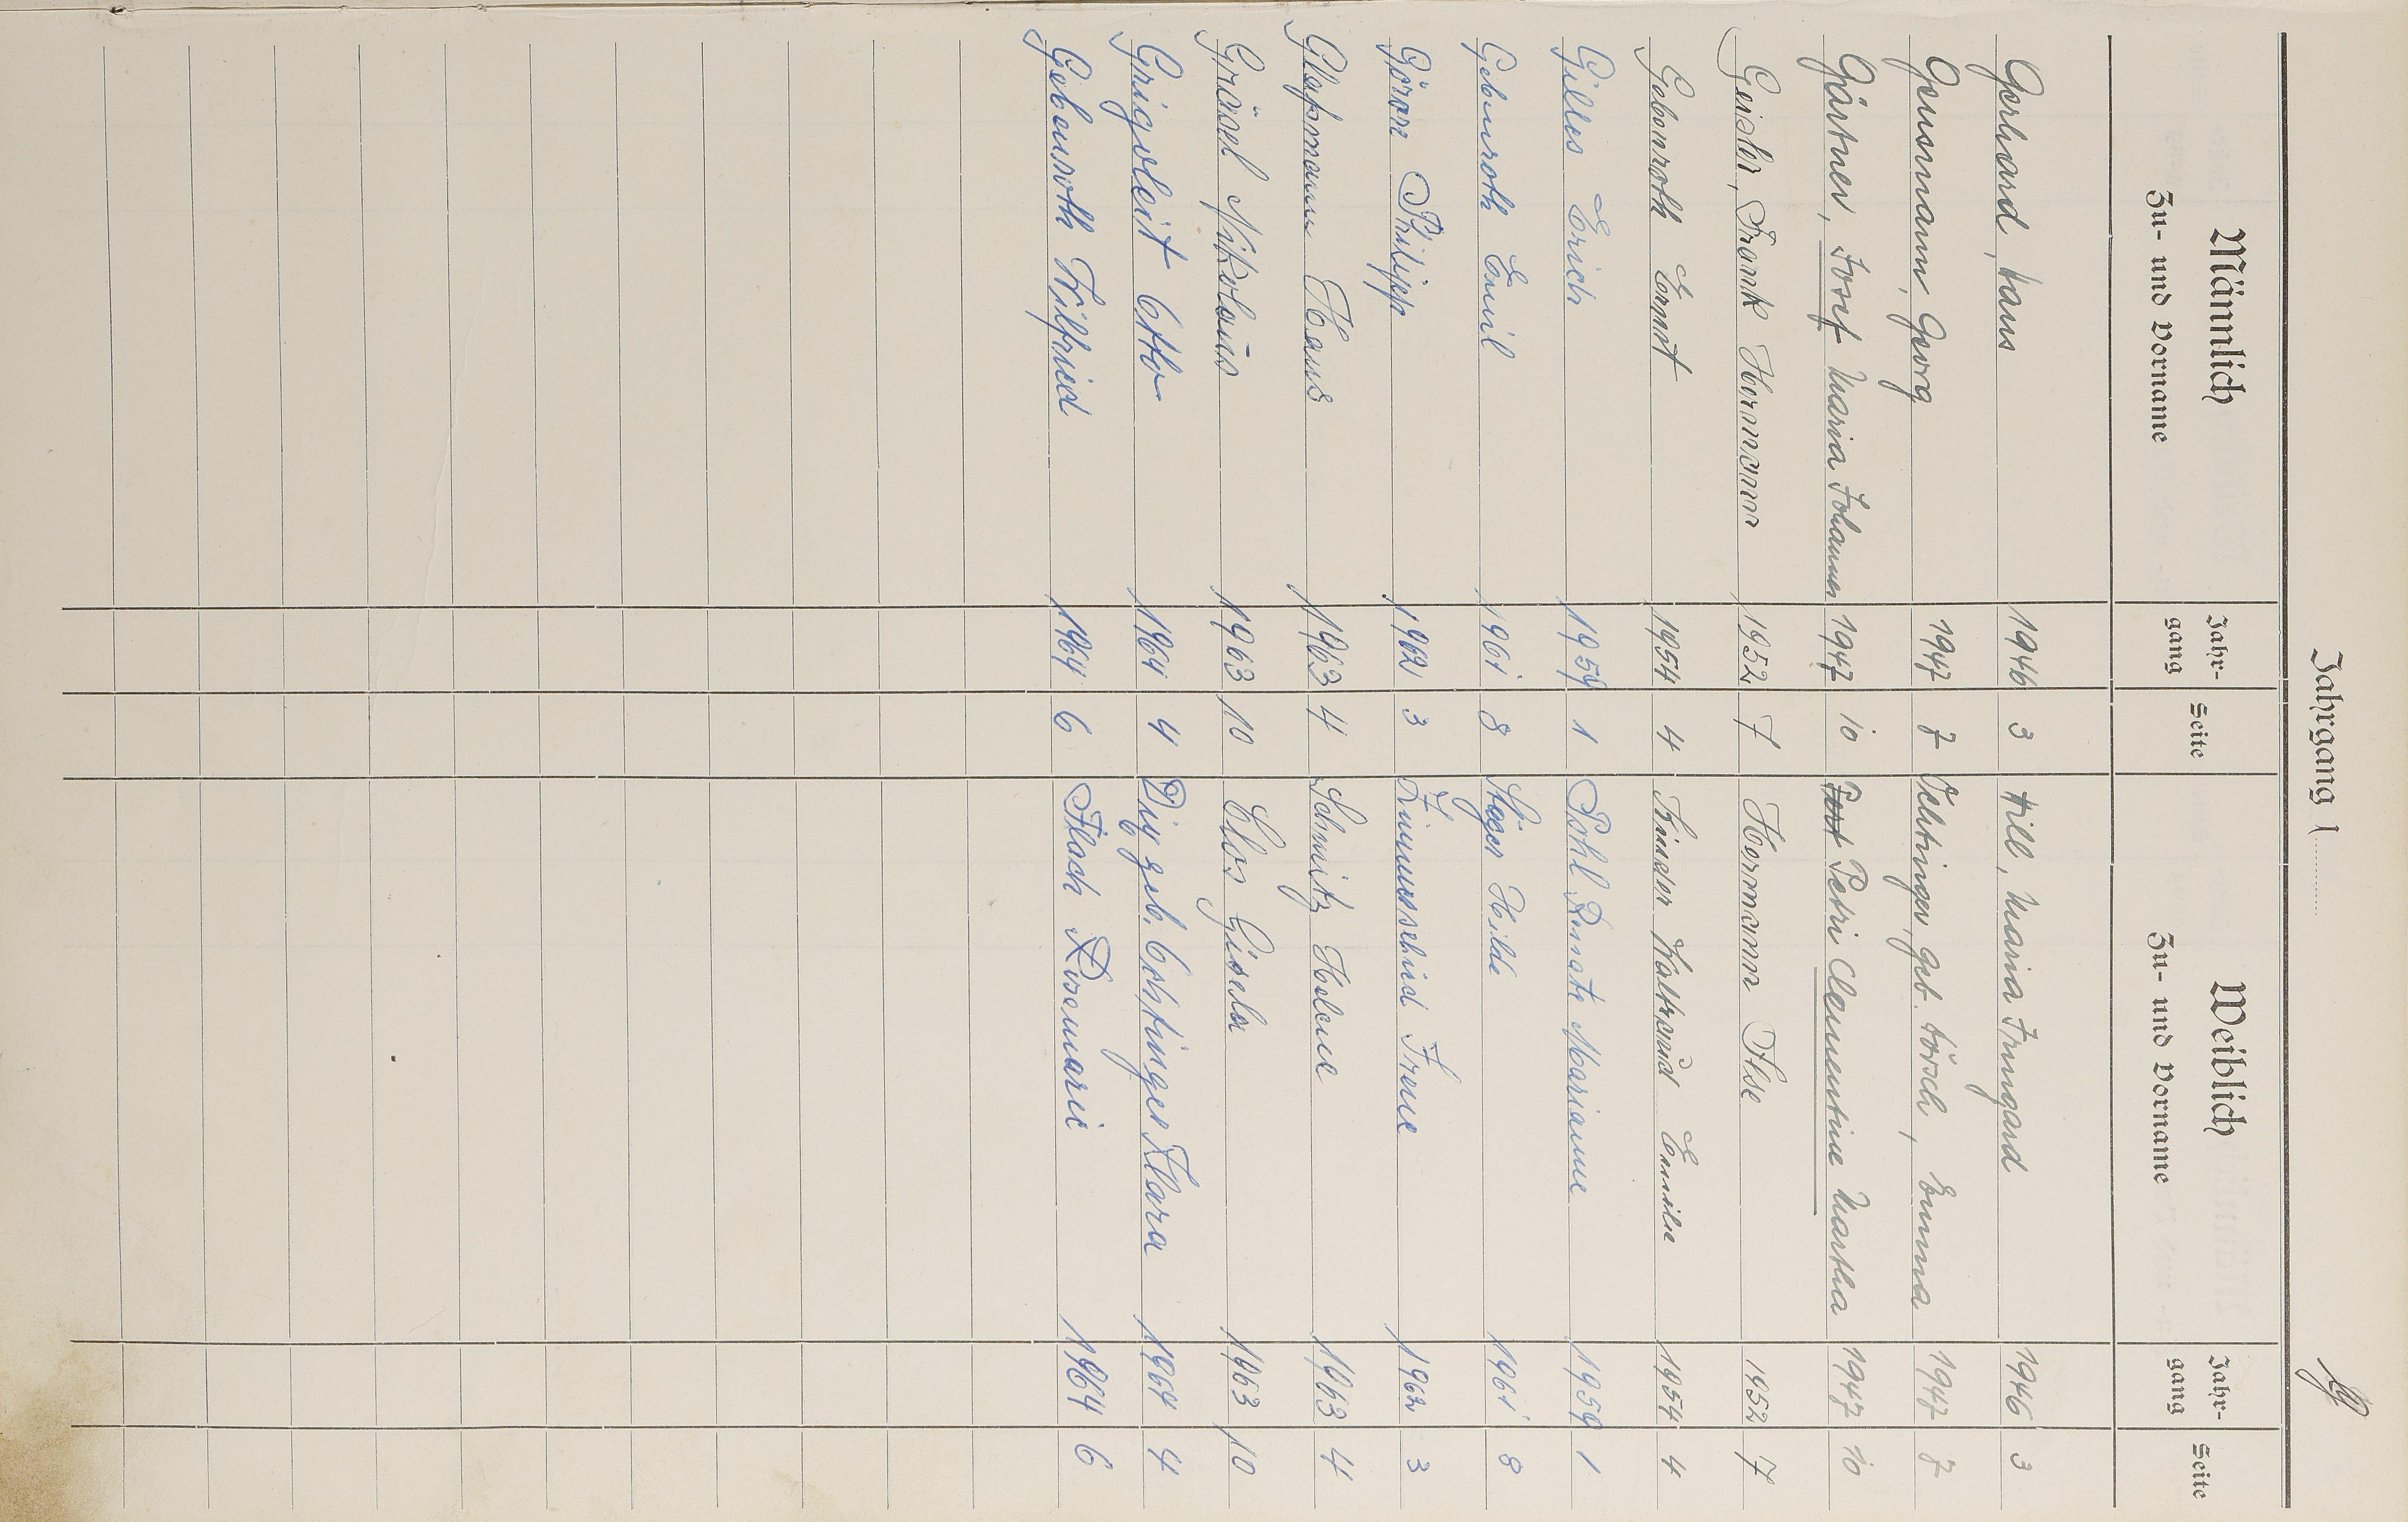 Jahrgang 1 G
Männlich Weiblich
Zu- und Vorname Jahrgang Seite Zu- und Vorname Jahrgang Seite
Gerhard, Hans 1946 3 Hill, Maria Irmgard 1946 3
Geusmann, Georg 1947 7 Oehtinger, geb. Lösch, Emma 1947 7
Gärtner, Josef Maria Johannes 1947 10 Petri Clementine Martha 1947 10
Geisler, Frank Hermann 1952 7 Hermann Ilse 1952 7
Gebenroth Ernst 1954 4 Waltraud Emilie 1954 4
Gilles Erich 1959 1 Pohl Renate Marianne 1959 1
Gebenroth Emil 1961 8 Stoger Hilde 1961 8
Göran Philipp 1962 3 Zimmerschied Irene 1962 3
Glassmann Hans 1963 4 Schmitz Helene 1963 4
Grössl Nikolaus 1963 10 Elos Gisela 1963 10
Grigoleit Otto 1964 4 Dig geb. Ochtinger Klara 1964 4
Gebenroth Wilfried 1964 6 Flach Rosemarie 1964 6